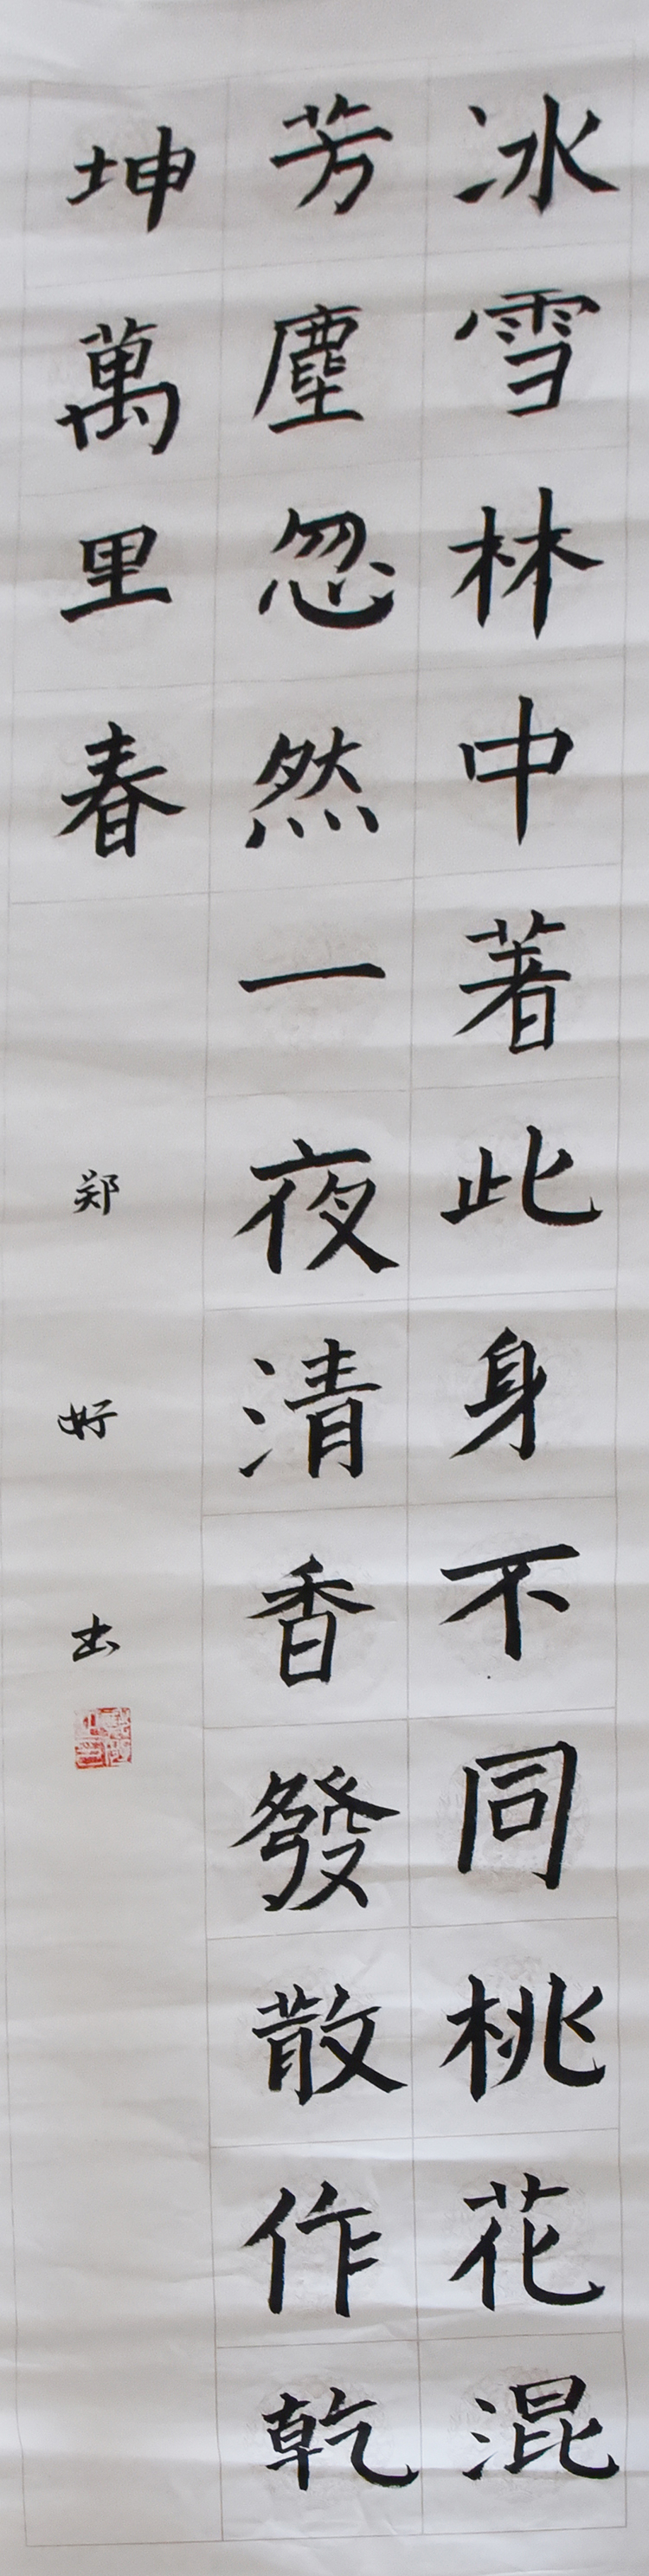 冰雪林中著此身不同桃花混
芳塵忽然一夜清香發散作乾
坤萬里春
郑好书